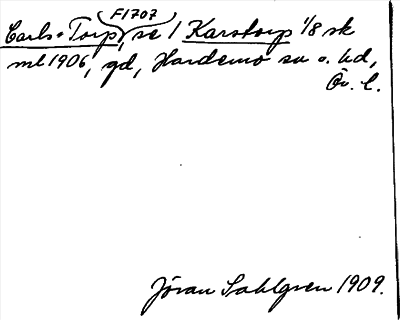 F1707
Carls-Torp, se / Karstorp 1/8 sk
ml 1906, gd, Hardemo sn o. hd,
Ör. l.
Jöran Sahlgren 1909.